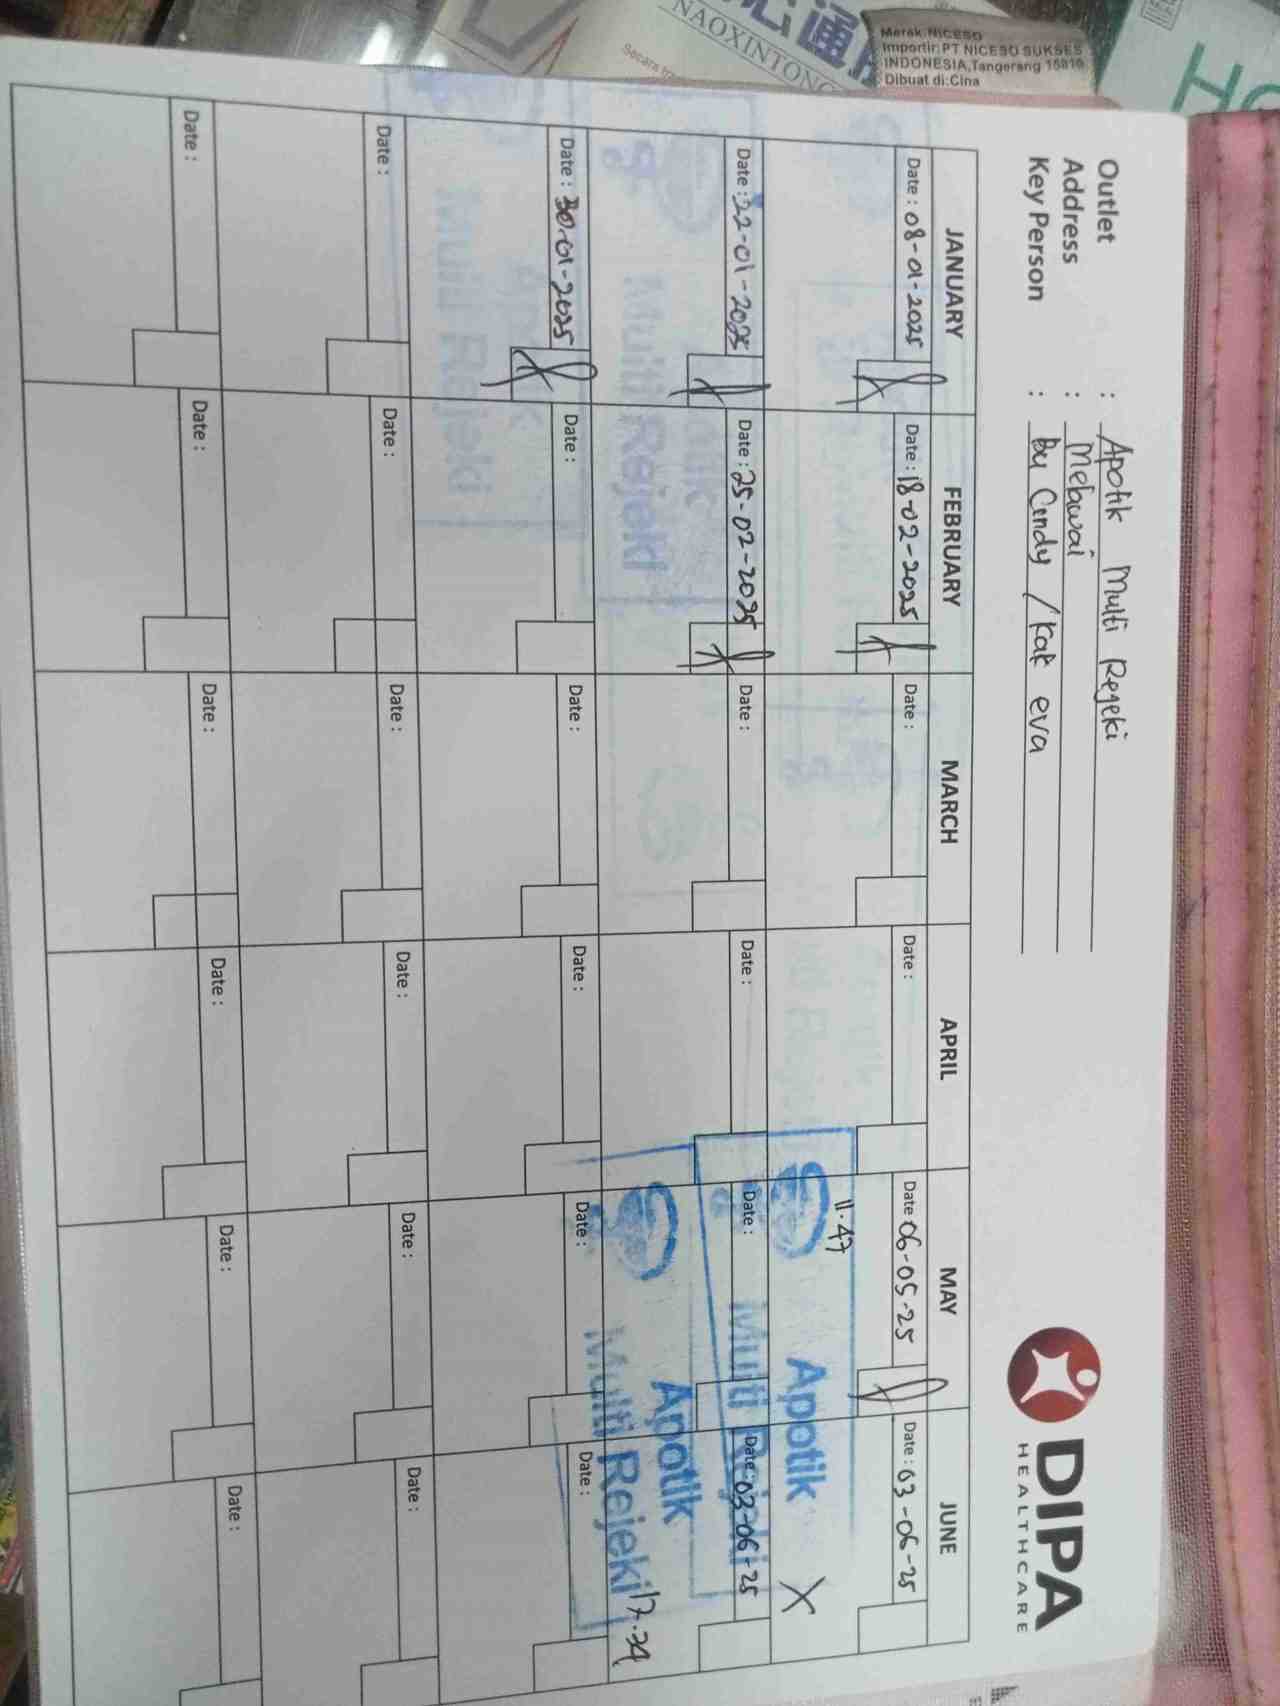 NAOXINTONG
Merek:NICESO
Importir:PT NICESO SUKSES
INDONESIA,Tangerang 15810
Dibuat di:Cina
Outlet : Apotik Multi Rejeki
Address : Melawai
Key Person : Bu Cindy / Kak eva
DIPA
HEALTHCARE
JANUARY FEBRUARY MARCH APRIL MAY JUNE
Date : 08-01-2025 Date : 18-02-2025 Date : Date : Date 06-05-25 Date : 03-06-25
11.47
Apotik
Multi Rejeki
X
Date : 22-01-2025 Date : 25-02-2025 Date : Date : Date : Date : 03-06-25
Apotik
Multi Rejeki
17.34
Date : 30-01-2025 Date : Date : Date : Date : Date :
Date : Date : Date : Date : Date : Date :
Date : Date : Date : Date : Date : Date :